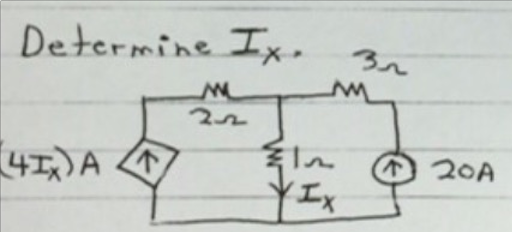 Determine Ix.
3Ω
2Ω
(4Ix)A
1Ω
20A
Ix